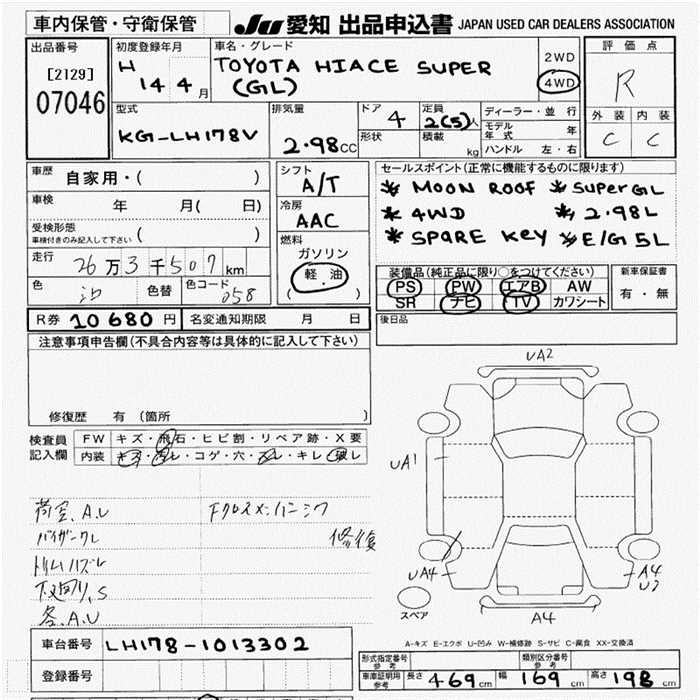 車内保管・守衛保管
JU 愛知 出品申込書 JAPAN USED CAR DEALERS ASSOCIATION
出品番号
[2129]
07046
初度登録年月
H 14 4 月
車名・グレード
TOYOTA HIACE SUPER
(GL)
2WD
4WD
評価点
R
外装 内装
C C
型式
KG-LH178V
排気量
2.98 CC
ドア
4
形状
定員
2(5)人
積載
kg
ディーラー・並行
モデル年式 年
ハンドル 左・右
車歴
自家用・( )
車検
年 月( 日)
受検形態
車検付きのみ記入して下さい ( )
走行
26万3千507km
色
色替
色コード
058
シフト
A/T
冷房
AAC
燃料
ガソリン
軽・油
( )
セールスポイント(正常に機能するものに限ります)
* MOON ROOF * SUPER GL
* 4WD * 2.98L
* SPARE KEY * E/G 5L
装備品(純正品に限り○をつけてください)
PS PW エアB AW
SR ナビ TV カワシート
新車保証書
有・無
R券 10680 円
名変通知期限 月 日
後日品
注意事項申告欄(不具合内容等は具体的に記入して下さい)
修復歴 有(箇所 )
検査員
記入欄
FW キズ・飛石・ヒビ割・リペア跡・X要
内装 キズ・汚レ・コゲ・穴・スレ・キレ・破レ
荷室、A.U
バイザークレ
トリムハズレ
下廻り、S
各、A.U
修復
UA2
UA1
UA4
A4
A4
スペア
A-キズ E-エクボ U-凹み W-補修跡 S-サビ C-腐食 XX-交換済
車台番号
LH178-1013302
登録番号
形式指定番号
参考
類別区分番号
参考
車庫証明用
参考
長さ 469 cm 幅 169 cm 高さ 198 cm